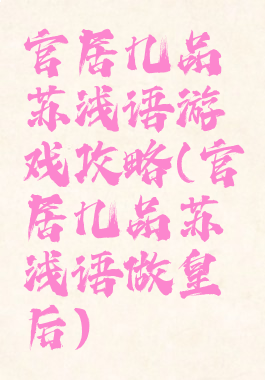 官居九品
苏浅语游
戏攻略(官
居九品苏
浅语做皇
后)